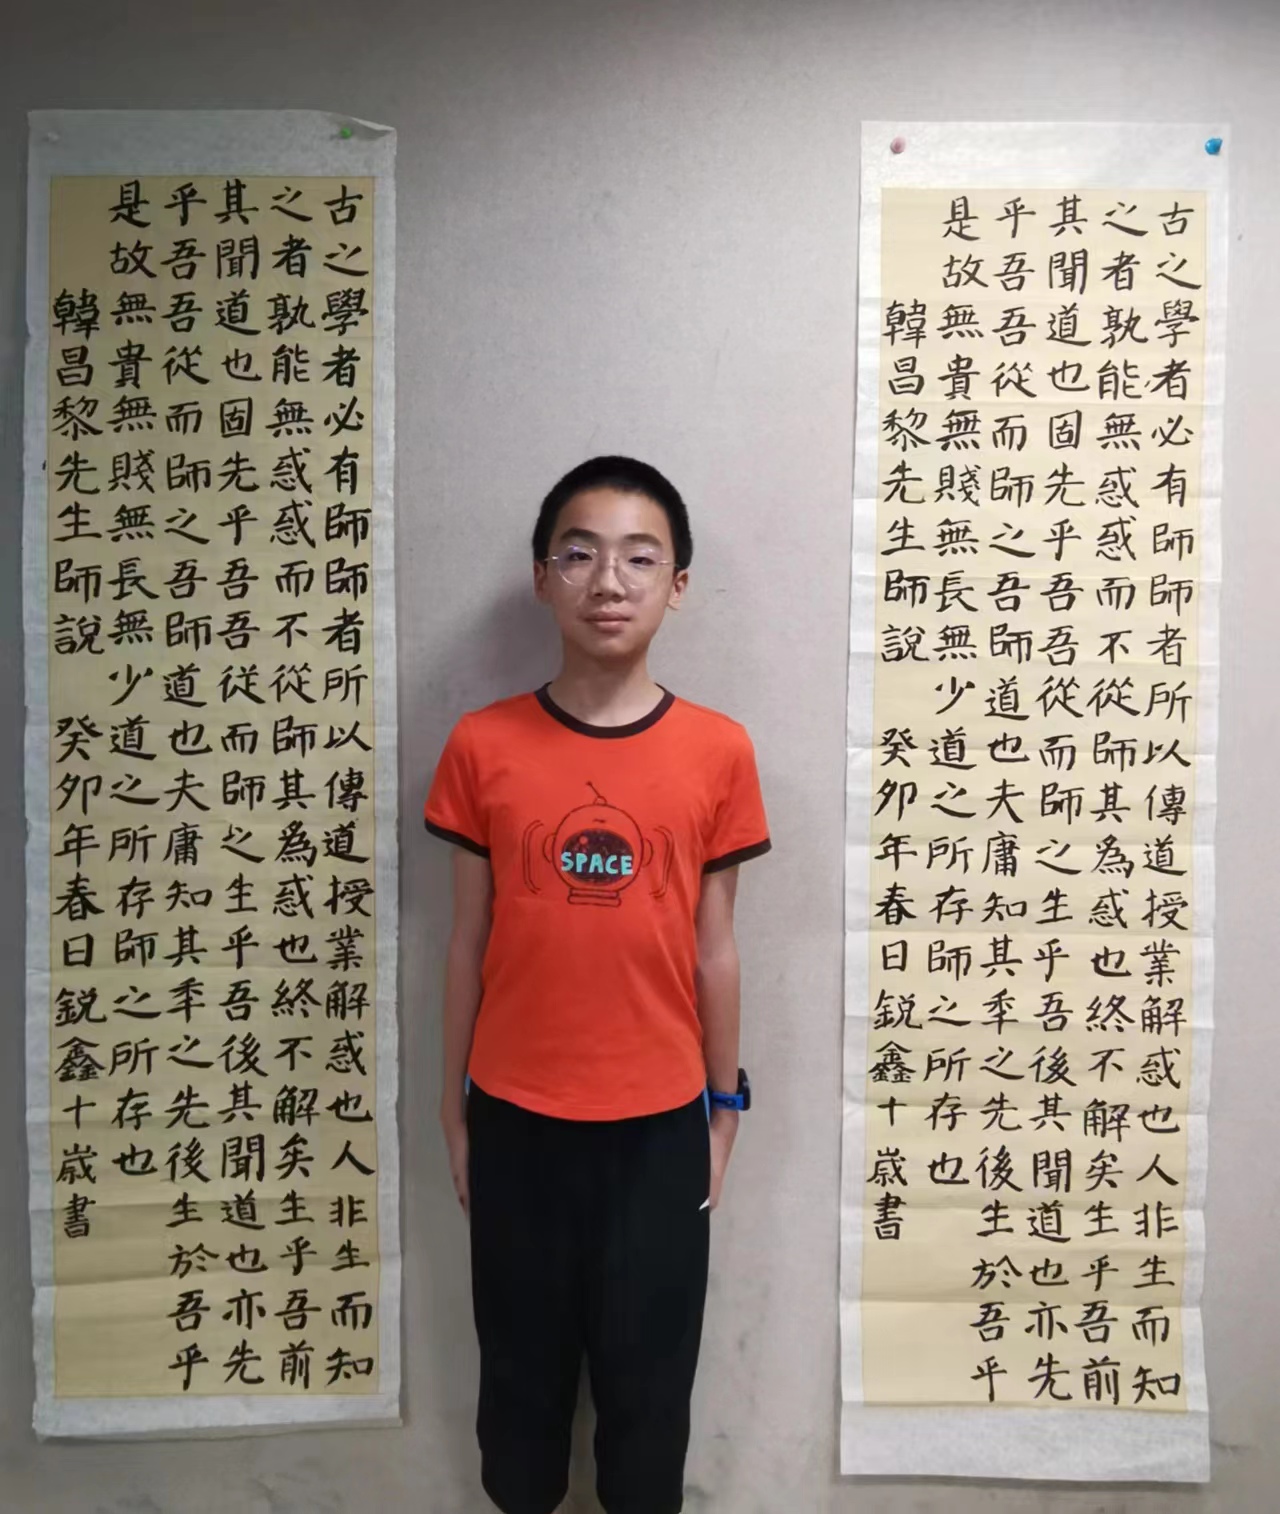 古之學者必有師師者所以傳道授業解惑也人非生而知
之者孰能無惑惑而不從師其為惑也終不解矣生乎吾前
其聞道也固先乎吾吾従而師之生乎吾後其聞道也亦先
乎吾吾從而師之吾師道也夫庸知其秊之先後生於吾乎
是故無貴無賤無長無少道之所存師之所存也
韓昌黎先生師說 癸卯年春日鋭鑫十歲書
SPACE
古之學者必有師師者所以傳道授業解惑也人非生而知
之者孰能無惑惑而不從師其為惑也終不解矣生乎吾前
其聞道也固先乎吾吾從而師之生乎吾後其聞道也亦先
乎吾吾從而師之吾師道也夫庸知其秊之先後生於吾乎
是故無貴無賤無長無少道之所存師之所存也
韓昌黎先生師說 癸卯年春日鋭鑫十歲書